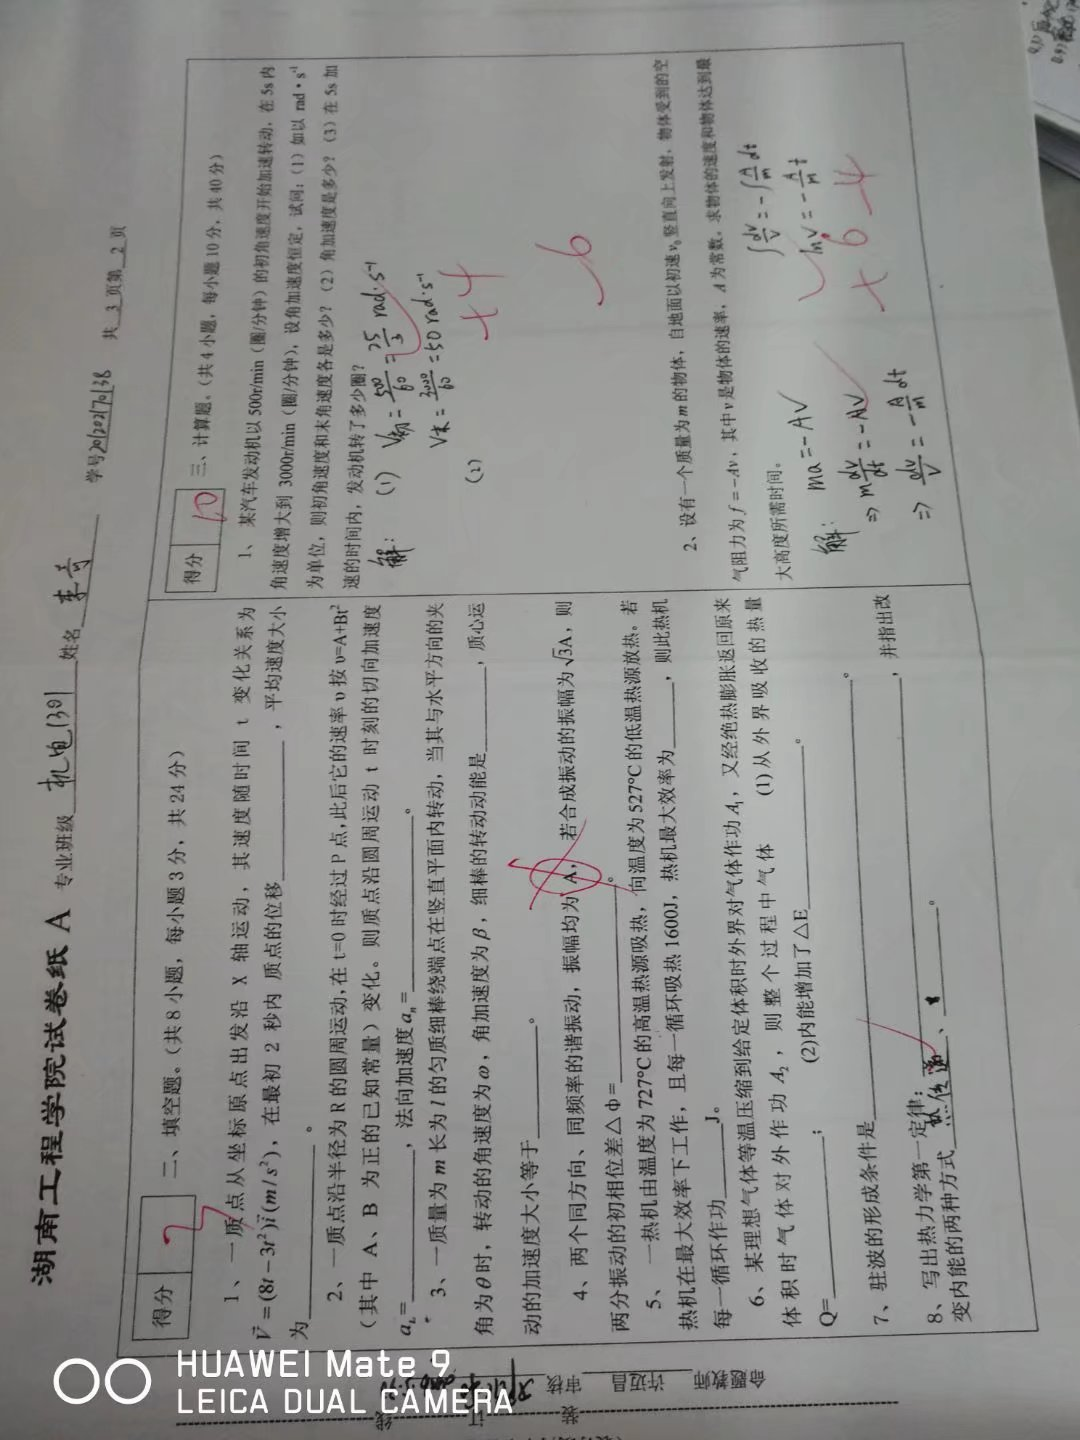 湖南工程学院试卷纸 A 专业班级 机电1301 姓名 李奇 学号 201202170138 共 3 页第 2 页
得分 7
二、填空题。（共8小题，每小题3分，共24分）
1、一质点从坐标原点出发沿 X 轴运动，其速度随时间 t 变化关系为
V⃗=(8t−3t²)i⃗(m/s²)，在最初 2 秒内 质点的位移________，平均速度大小
为________。
2、一质点沿半径为R的圆周运动,在t=0时经过P点,此后它的速率υ按υ=A+Bt²
（其中 A、B 为正的已知常量）变化。则质点沿圆周运动 t 时刻的切向加速度
aₜ=________，法向加速度aₙ=________。
3、一质量为 m 长为 l 的匀质细棒绕端点在竖直平面内转动，当其与水平方向的夹
角为θ时，转动的角速度为ω，角加速度为β，细棒的转动动能是________，质心运
动的加速度大小等于________。
4、两个同方向、同频率的谐振动，振幅均为 A，若合成振动的振幅为√3A，则
两分振动的初相位差△Φ=________。
5、一热机由温度为727℃的高温热源吸热，向温度为527℃的低温热源放热。若
热机在最大效率下工作，且每一循环吸热1600J，热机最大效率为________，则此热机
每一循环作功________J。
6、某理想气体等温压缩到给定体积时外界对气体作功A₁，又经绝热膨胀返回原来
体积时气体对外作功A₂，则整个过程中气体 (1)从外界吸收的热量
Q=________； (2)内能增加了△E________。
7、驻波的形成条件是________。
8、写出热力学第一定律：________，并指出改
变内能的两种方式 热传递 、________。
得分 10
三、计算题。（共4小题，每小题10分，共40分）
1、某汽车发动机以500r/min（圈/分钟）的初角速度开始加速转动，在5s内
角速度增大到 3000r/min（圈/分钟），设角加速度恒定，试问：（1）如以 rad·s⁻¹
为单位，则初角速度和末角速度各是多少？（2）角加速度是多少？（3）在5s加
速的时间内，发动机转了多少圈？
解： (1) V初=500/60=25/3 rad·s⁻¹
V末=3000/60=50 rad·s⁻¹
+4
(2)
6
2、设有一个质量为m的物体，自地面以初速v₀竖直向上发射，物体受到的空
气阻力为f=−Av，其中v是物体的速率，A为常数，求物体的速度和物体达到最
大高度所需时间。
解： ma=−AV
⇒ m dv/dt=−AV
⇒ dv/V=−A/m dt
∫dv/V=−∫A/m dt
lnV=−A/m t
+6 −4
命题教师 许迈昌 审核
装 订 线
HUAWEI Mate 9
LEICA DUAL CAMERA